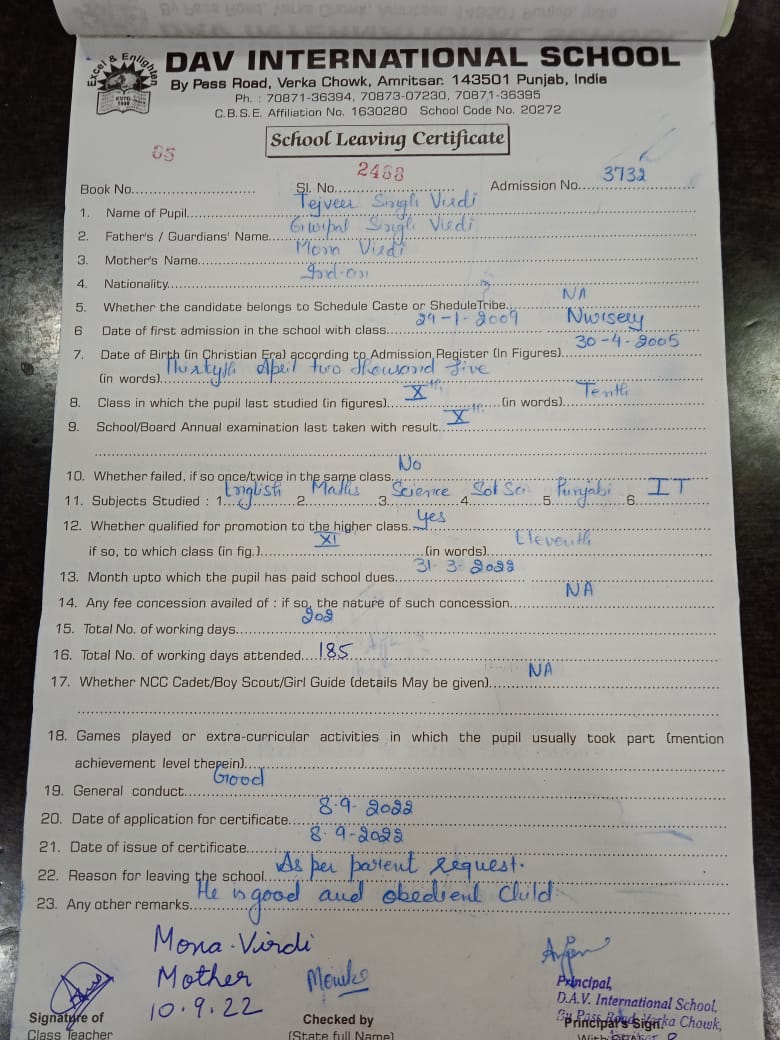 Excel & Enlighten
ESTD
DAV INTERNATIONAL SCHOOL
By Pass Road, Verka Chowk, Amritsar. 143501 Punjab, India
Ph. : 70871-36394, 70873-07230, 70871-36395
C.B.S.E. Affiliation No. 1630280 School Code No. 20272
School Leaving Certificate
Book No. 65 Sl. No. 2468 Admission No. 3732
1. Name of Pupil Tejveer Singh Virdi
2. Father's / Guardians' Name Giripal Singh Virdi
3. Mother's Name Mona Virdi
4. Nationality Indian
5. Whether the candidate belongs to Schedule Caste or SheduleTribe NA
6 Date of first admission in the school with class 29-1-2009 Nursery
7. Date of Birth (in Christian Era) according to Admission Register (In Figures) 30-4-2005
(in words) Thirtyth April two thousand five
8. Class in which the pupil last studied (in figures) Xth (in words) Tenth
9. School/Board Annual examination last taken with result Xth
10. Whether failed, if so once/twice in the same class No
11. Subjects Studied : 1. English 2. Maths 3. Science 4. Sst Sci 5. Punjabi 6. IT
12. Whether qualified for promotion to the higher class Yes
if so, to which class (in fig.) XI (in words) Eleventh
13. Month upto which the pupil has paid school dues 31-3-2022
14. Any fee concession availed of : if so, the nature of such concession NA
15. Total No. of working days 202
16. Total No. of working days attended 185
17. Whether NCC Cadet/Boy Scout/Girl Guide (details May be given) NA
18. Games played or extra-curricular activities in which the pupil usually took part (mention
achievement level therein)
19. General conduct Good
20. Date of application for certificate 8.9.2022
21. Date of issue of certificate 8-9-2022
22. Reason for leaving the school As per parent request.
23. Any other remarks He is good and obedient child
Mona Virdi
Mother
10.9.22
Principal,
D.A.V. International School,
By Pass Road, Verka Chowk,
Signature of
Class Teacher
Checked by
(State full Name)
Principal's Sign.